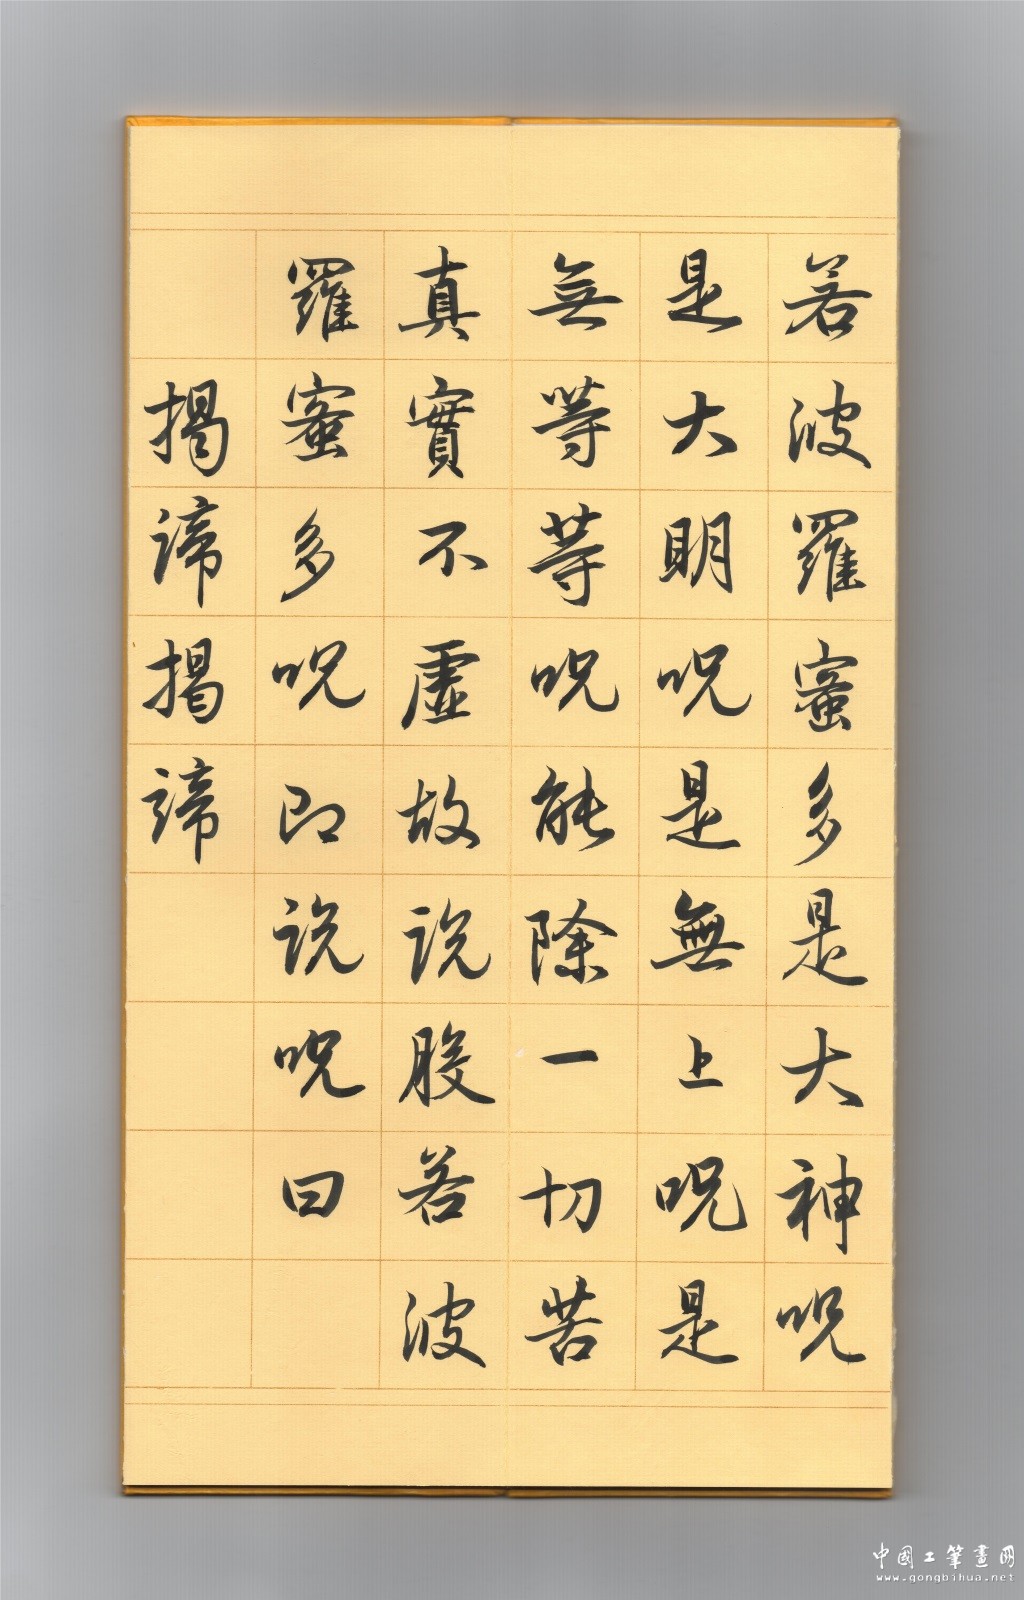 若波羅蜜多是大神呪
是大明呪是無上呪是
無等等呪能除一切苦
真實不虛故説般若波
羅蜜多呪即説呪曰
揭諦揭諦
中國工筆畫网
www.gongbihua.net